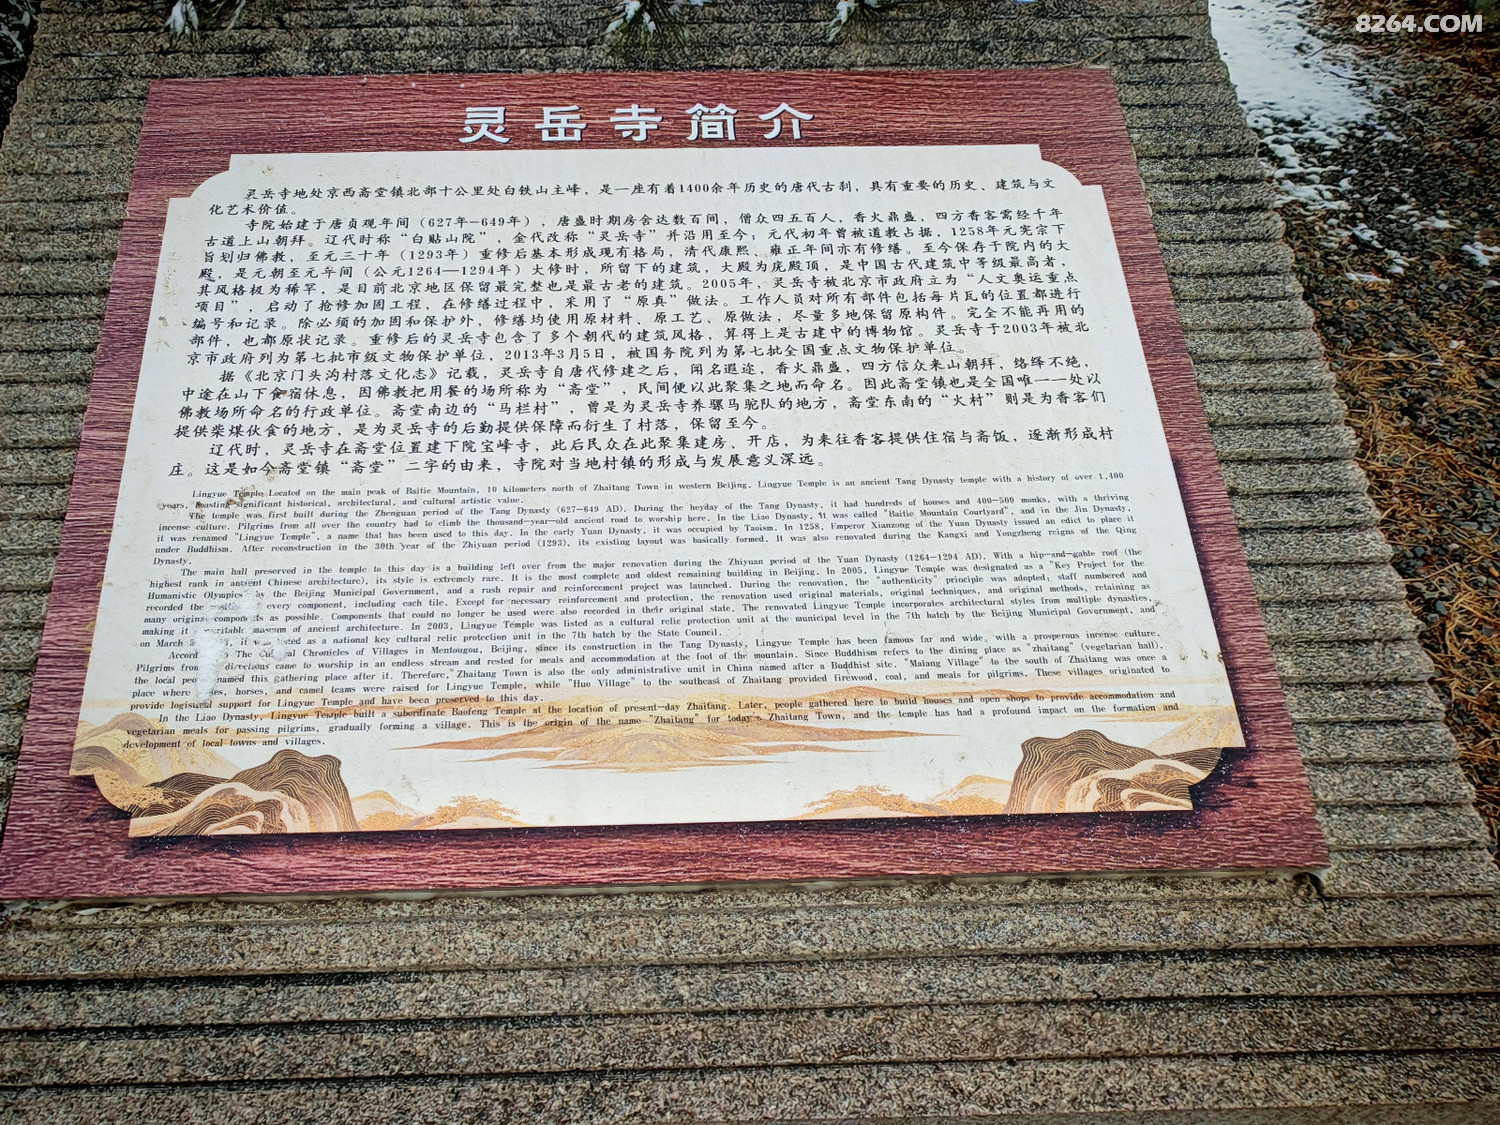 8264.COM
灵岳寺简介
灵岳寺地处京西斋堂镇北部十公里处白铁山主峰，是一座有着1400余年历史的唐代古刹，具有重要的历史、建筑与文
化艺术价值。
寺院始建于唐贞观年间（627年—649年），唐盛时期房舍达数百间，僧众四五百人，香火鼎盛，四方香客需经千年
古道上山朝拜。辽代时称“白贴山院”，金代改称“灵岳寺”并沿用至今；元代初年曾被道教占据，1258年元宪宗下
旨划归佛教，至元三十年（1293年）重修后基本形成现有格局，清代康熙、雍正年间亦有修缮。至今保存于院内的大
殿，是元朝至元年间（公元1264—1294年）大修时，所留下的建筑，大殿为庑殿顶，是中国古代建筑中等级最高者，
其风格极为稀罕，是目前北京地区保留最完整也是最古老的建筑。2005年，灵岳寺被北京市政府立为“人文奥运重点
项目”，启动了抢修加固工程，在修缮过程中，采用了“原真”做法。工作人员对所有部件包括每片瓦的位置都进行
编号和记录。除必须的加固和保护外，修缮均使用原材料、原工艺、原做法，尽量多地保留原构件。完全不能再用的
部件，也都原状记录。重修后的灵岳寺包含了多个朝代的建筑风格，算得上是古建中的博物馆。灵岳寺于2003年被北
京市政府列为第七批市级文物保护单位，2013年3月5日，被国务院列为第七批全国重点文物保护单位。
据《北京门头沟村落文化志》记载，灵岳寺自唐代修建之后，闻名遐迩，香火鼎盛，四方信众来山朝拜，络绎不绝，
中途在山下食宿休息，因佛教把用餐的场所称为“斋堂”，民间便以此聚集之地而命名。因此斋堂镇也是全国唯一一处以
佛教场所命名的行政单位。斋堂南边的“马栏村”，曾是为灵岳寺养骡马驼队的地方，斋堂东南的“火村”则是为香客们
提供柴煤伙食的地方，是为灵岳寺的后勤提供保障而衍生了村落，保留至今。
辽代时，灵岳寺在斋堂位置建下院宝峰寺，此后民众在此聚集建房、开店，为来往香客提供住宿与斋饭，逐渐形成村
庄。这是如今斋堂镇“斋堂”二字的由来，寺院对当地村镇的形成与发展意义深远。
Lingyue Temple Located on the main peak of Baitie Mountain, 10 kilometers north of Zhaitang Town in western Beijing, Lingyue Temple is an ancient Tang Dynasty temple with a history of over 1,400
years, boasting significant historical, architectural, and cultural artistic value.
The temple was first built during the Zhenguan period of the Tang Dynasty (627-649 AD). During the heyday of the Tang Dynasty, it had hundreds of houses and 400-500 monks, with a thriving
incense culture. Pilgrims from all over the country had to climb the thousand-year-old ancient road to worship here. In the Liao Dynasty, it was called "Baitie Mountain Courtyard", and in the Jin Dynasty,
it was renamed "Lingyue Temple", a name that has been used to this day. In the early Yuan Dynasty, it was occupied by Taoism. In 1258, Emperor Xianzong of the Yuan Dynasty issued an edict to place it
under Buddhism. After reconstruction in the 30th year of the Zhiyuan period (1293), its existing layout was basically formed. It was also renovated during the Kangxi and Yongzheng reigns of the Qing
Dynasty.
The main hall preserved in the temple to this day is a building left over from the major renovation during the Zhiyuan period of the Yuan Dynasty (1264-1294 AD). With a hip-and-gable roof (the
highest rank in ancient Chinese architecture), its style is extremely rare. It is the most complete and oldest remaining building in Beijing. In 2005, Lingyue Temple was designated as a "Key Project for the
Humanistic Olympics" by the Beijing Municipal Government, and a rush repair and reinforcement project was launched. During the renovation, the "authenticity" principle was adopted; staff numbered and
recorded the every component, including each tile. Except for necessary reinforcement and protection, the renovation used original materials, original techniques, and original methods, retaining as
many original components as possible. Components that could no longer be used were also recorded in their original state. The renovated Lingyue Temple incorporates architectural styles from multiple dynasties,
making it museum of ancient architecture. In 2003, Lingyue Temple was listed as a cultural relic protection unit at the municipal level in the 7th batch by the Beijing Municipal Government, and
on March 5 it was listed as a national key cultural relic protection unit in the 7th batch by the State Council.
The Chronicles of Villages in Mentougou, Beijing, since its construction in the Tang Dynasty, Lingyue Temple has been famous far and wide, with a prosperous incense culture.
Pilgrims from directions came to worship in an endless stream and rested for meals and accommodation at the foot of the mountain. Since Buddhism refers to the dining place as "zhaitang" (vegetarian hall),
the local named this gathering place after it. Therefore, "Zhaitang Town is also the only administrative unit in China named after a Buddhist site. "Maiang Village" to the south of Zhaitang was once a
place where horses, and camel teams were raised for Lingyue Temple, while "Huo Village" to the southeast of Zhaitang provided firewood, coal, and meals for pilgrims. These villages originated to
provide logistical support for Lingyue Temple and have been preserved to this day.
In the Liao Dynasty, Lingyue Temple built a subordinate Baofeng Temple at the location of present-day Zhaitang. Later, people gathered here to build houses and open shops to provide accommodation and
vegetarian meals for passing pilgrims, gradually forming a village. This is the origin of the name "Zhaitang" for today's Zhaitang Town, and the temple has had a profound impact on the formation and
development of local towns and villages.